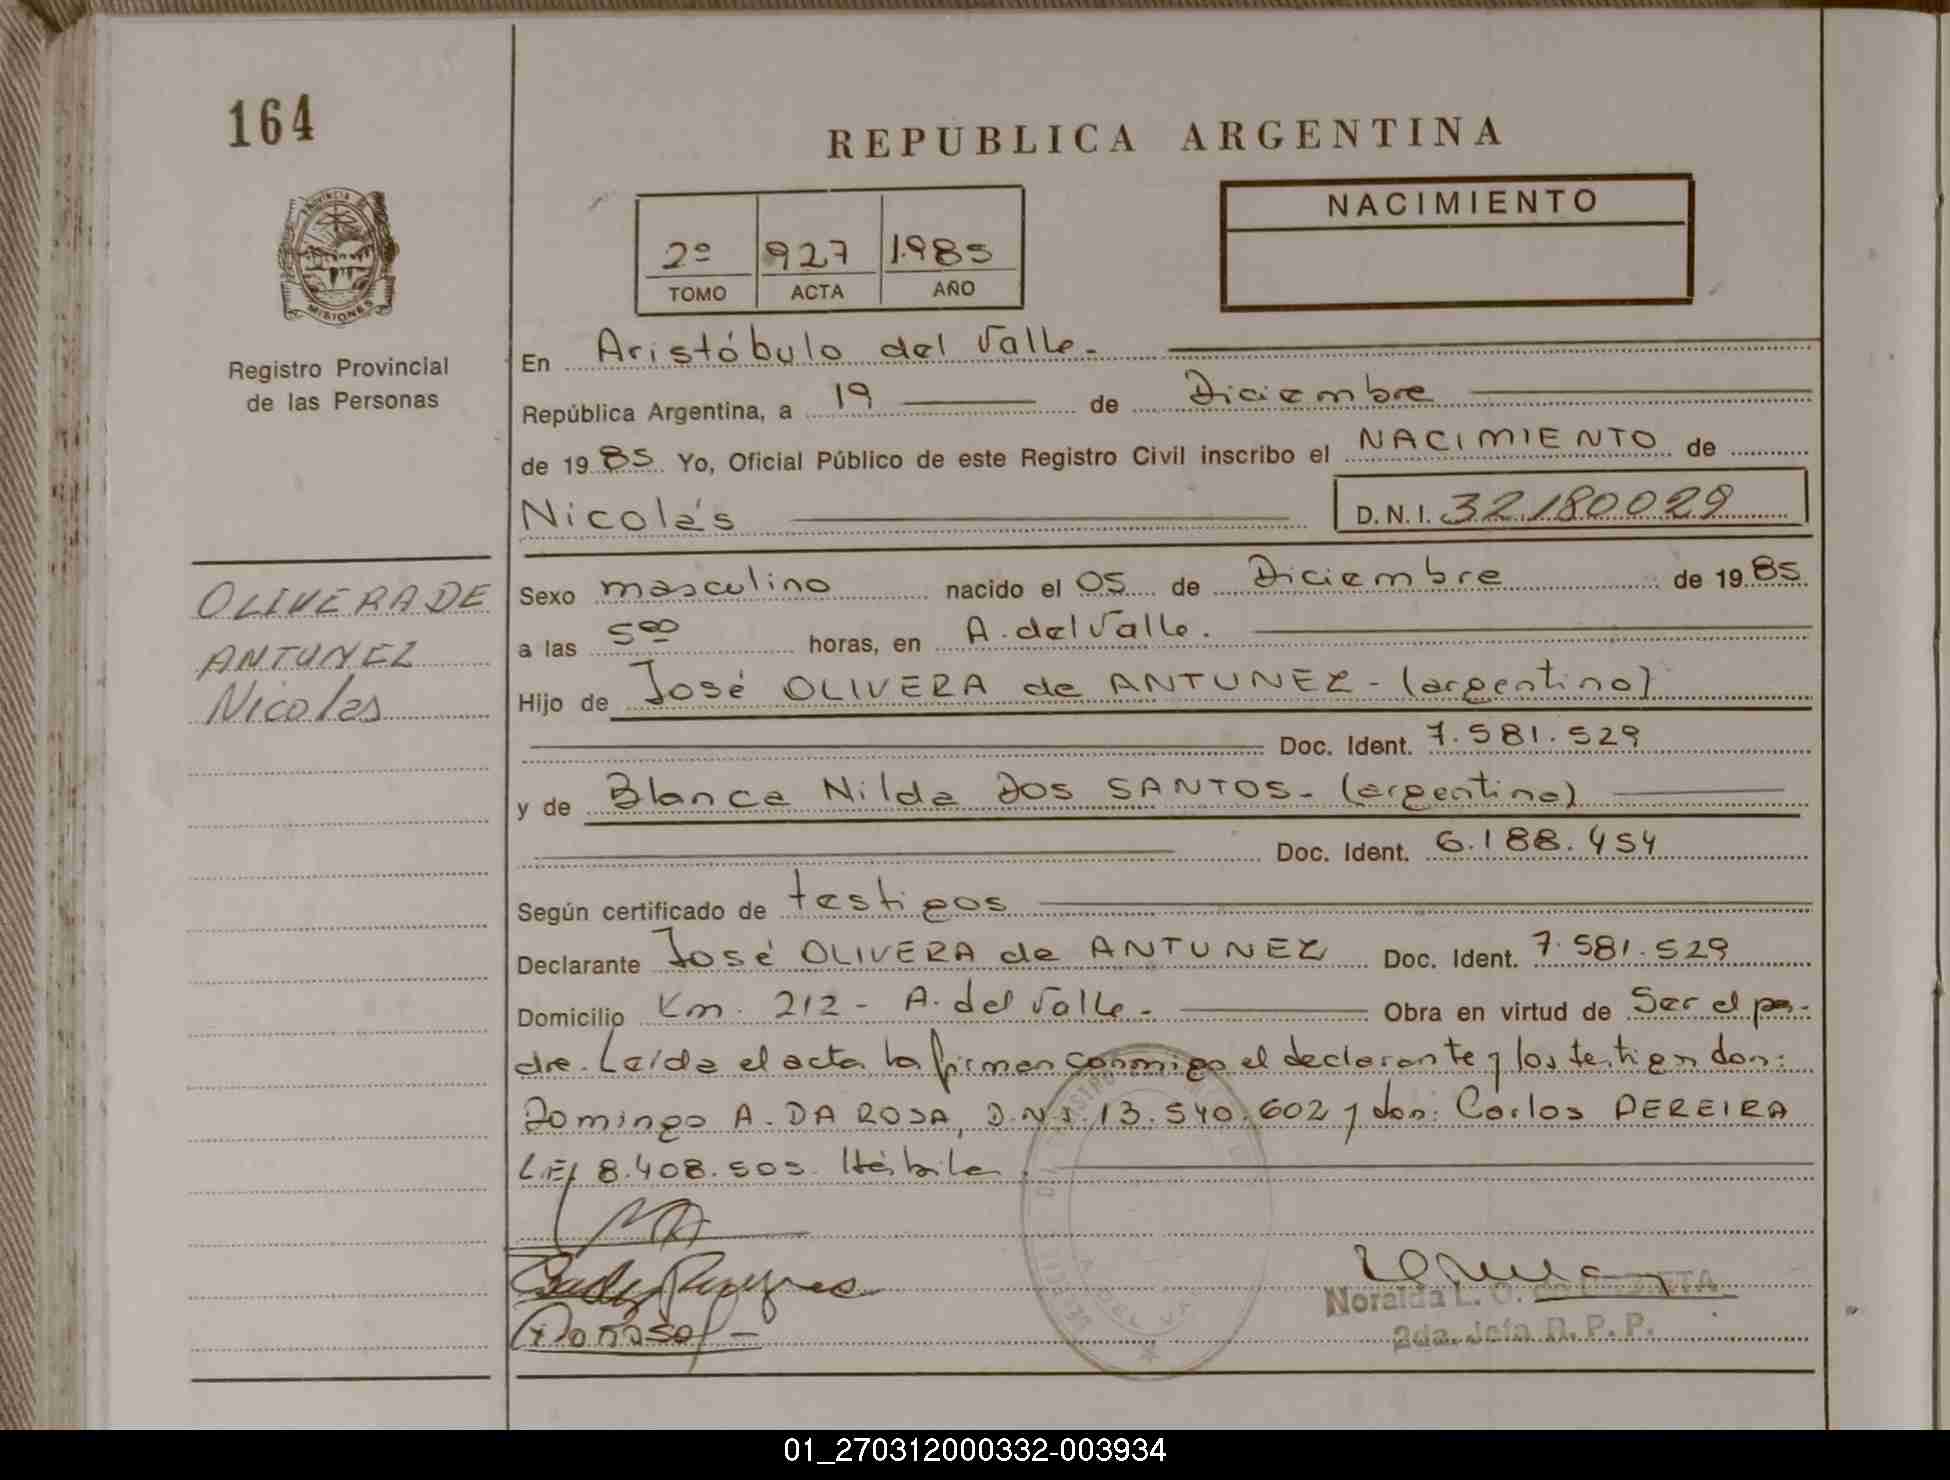 164
REPUBLICA ARGENTINA
PROVINCIA DE
MISIONES
Registro Provincial
de las Personas
2º 927 1.985
TOMO ACTA AÑO
NACIMIENTO
En Aristóbulo del Valle.-
República Argentina, a 19 de Diciembre
de 19 85 Yo, Oficial Público de este Registro Civil inscribo el NACIMIENTO de
Nicolás D. N. I. 32180029
OLIVERA DE
ANTUNEZ
Nicolas
Sexo masculino nacido el 05 de Diciembre de 19 85
a las 5 00 horas, en A. del Valle.
Hijo de José OLIVERA de ANTUNEZ - (argentino)
Doc. Ident. 7.581.529
y de Blanca Nilda DOS SANTOS - (argentina)
Doc. Ident. 6.188.454
Según certificado de testigos
Declarante José OLIVERA de ANTUNEZ Doc. Ident. 7.581.529
Domicilio Km. 212 - A. del Valle - Obra en virtud de Ser el pa-
dre. Leída el acta la firman conmigo el declarante y los testigos don:
Domingo A. DA ROSA, D.N.I. 13.540.602 y don: Carlos PEREIRA
L.E. 8.408.505. Hábiles.
Noralda L. O. de
2da. Jefa R. P. P.
01_270312000332-003934